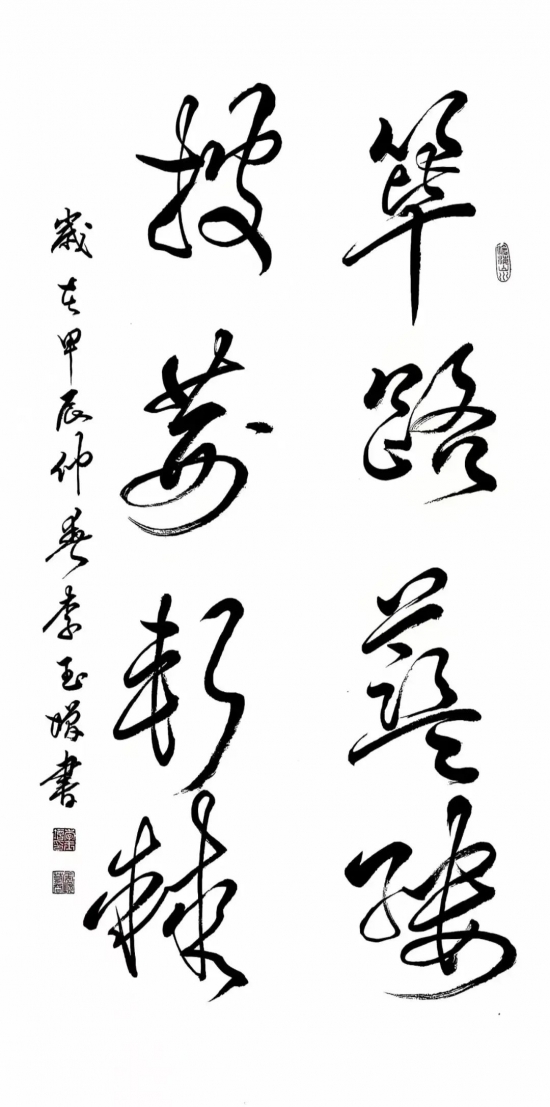 筚路蓝缕
披荆斩棘
歲在甲辰仲春李玉增書